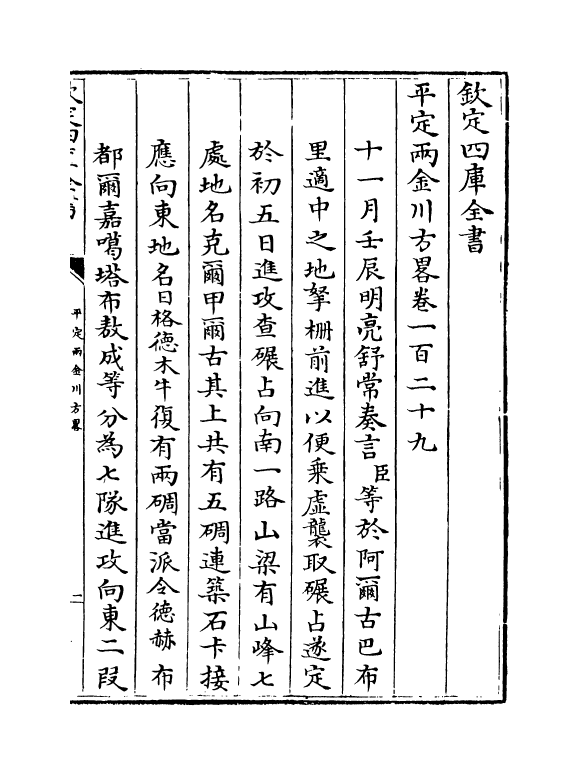 欽定四庫全書
平定兩金川方畧卷一百二十九
十一月壬辰明亮舒常奏言臣等於阿爾古巴布
里適中之地拏柵前進以便乘虛襲取碾占遂定
於初五日進攻查碾占向南一路山梁有山峰七
處地名克爾甲爾古其上共有五碉連築石卡接
應向東地名日格德木牛復有兩碉當派令德赫布
都爾嘉噶塔布敖成等分為七隊進攻向東二段
平定兩金川方畧